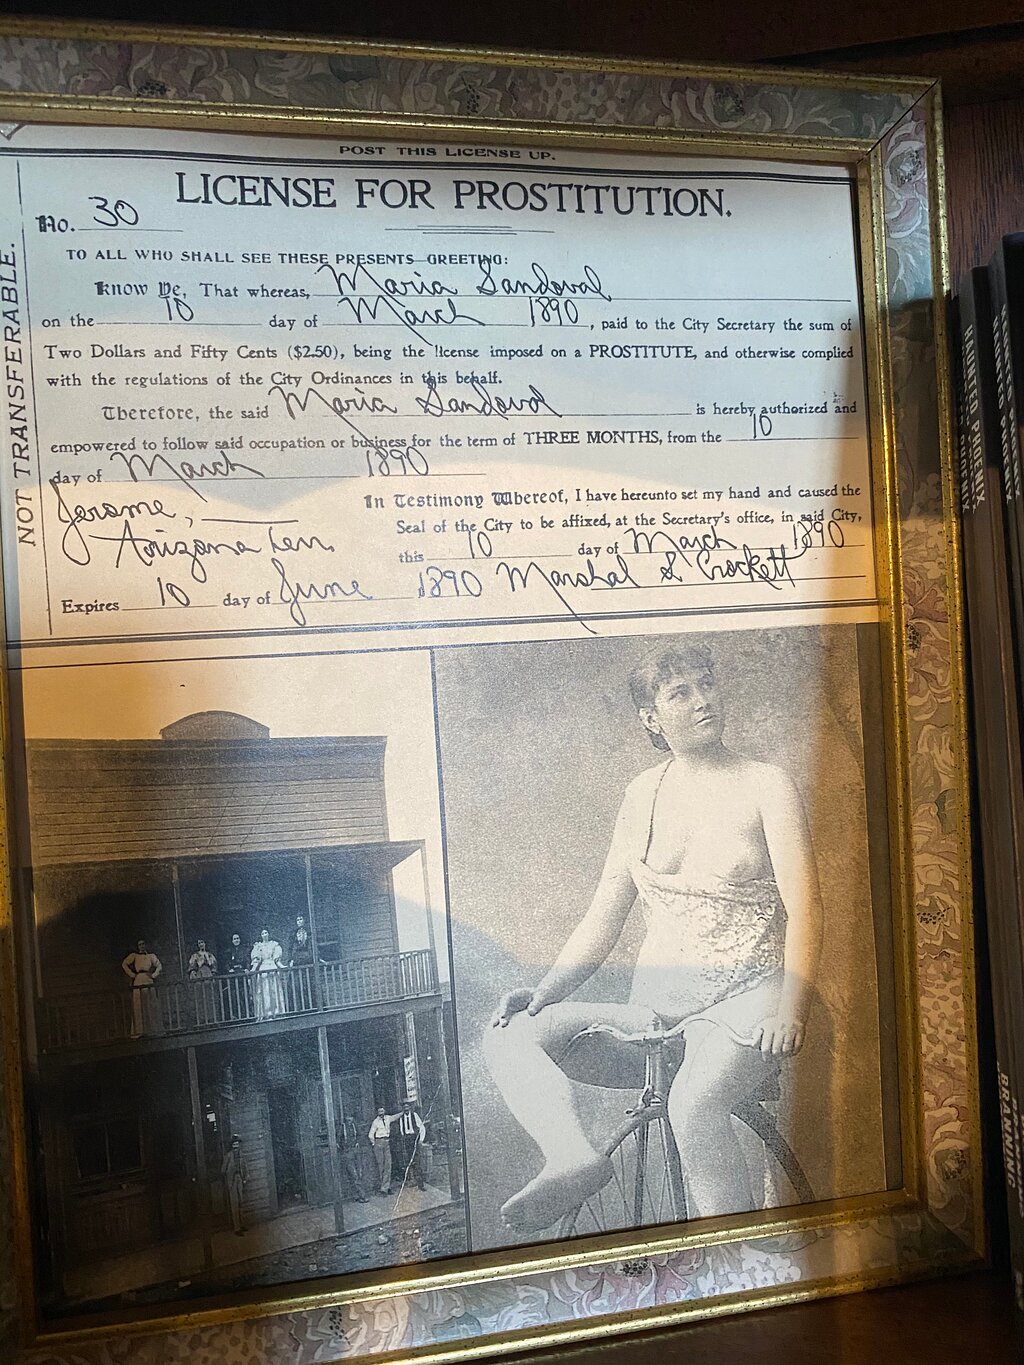 POST THIS LICENSE UP.
LICENSE FOR PROSTITUTION.
No. 30
NOT TRANSFERABLE.
TO ALL WHO SHALL SEE THESE PRESENTS—GREETING:
Know Ye, That whereas, Maria Sandoval
on the 10 day of March 1890, paid to the City Secretary the sum of
Two Dollars and Fifty Cents ($2.50), being the license imposed on a PROSTITUTE, and otherwise complied
with the regulations of the City Ordinances in this behalf.
Therefore, the said Maria Sandoval is hereby authorized and
empowered to follow said occupation or business for the term of THREE MONTHS, from the 10
day of March 1890
Jerome,
Arizona Terr.
In Testimony Whereof, I have hereunto set my hand and caused the
Seal of the City to be affixed, at the Secretary's office, in said City,
this 10 day of March 1890
Expires 10 day of June 1890 Marshal S Crockett
HAUNTED PHOENIX
BRANNING